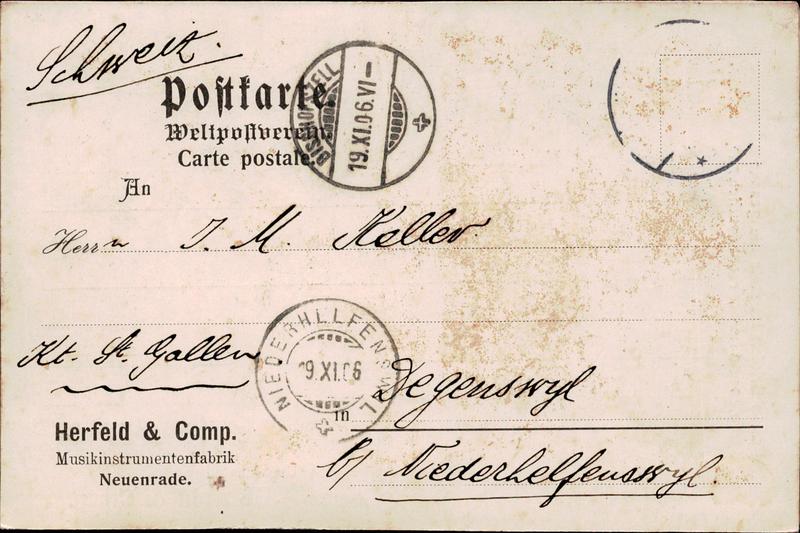 Schweiz.
Postkarte.
Weltpostverein.
Carte postale.
BISCHOFSZELL
19.XI.06.VI-
An
Herrn J. M. Keller
Kt. St. Gallen
NIEDERHELFENSWIL
19.XI.06
in Degenswyl
b/ Niederhelfensswyl.
Herfeld & Comp.
Musikinstrumentenfabrik
Neuenrade.